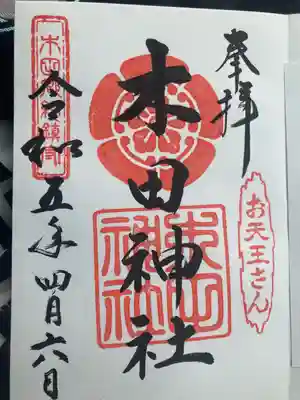 奉拝
お天王さん
木田神社
木田神社
令和五年四月六日